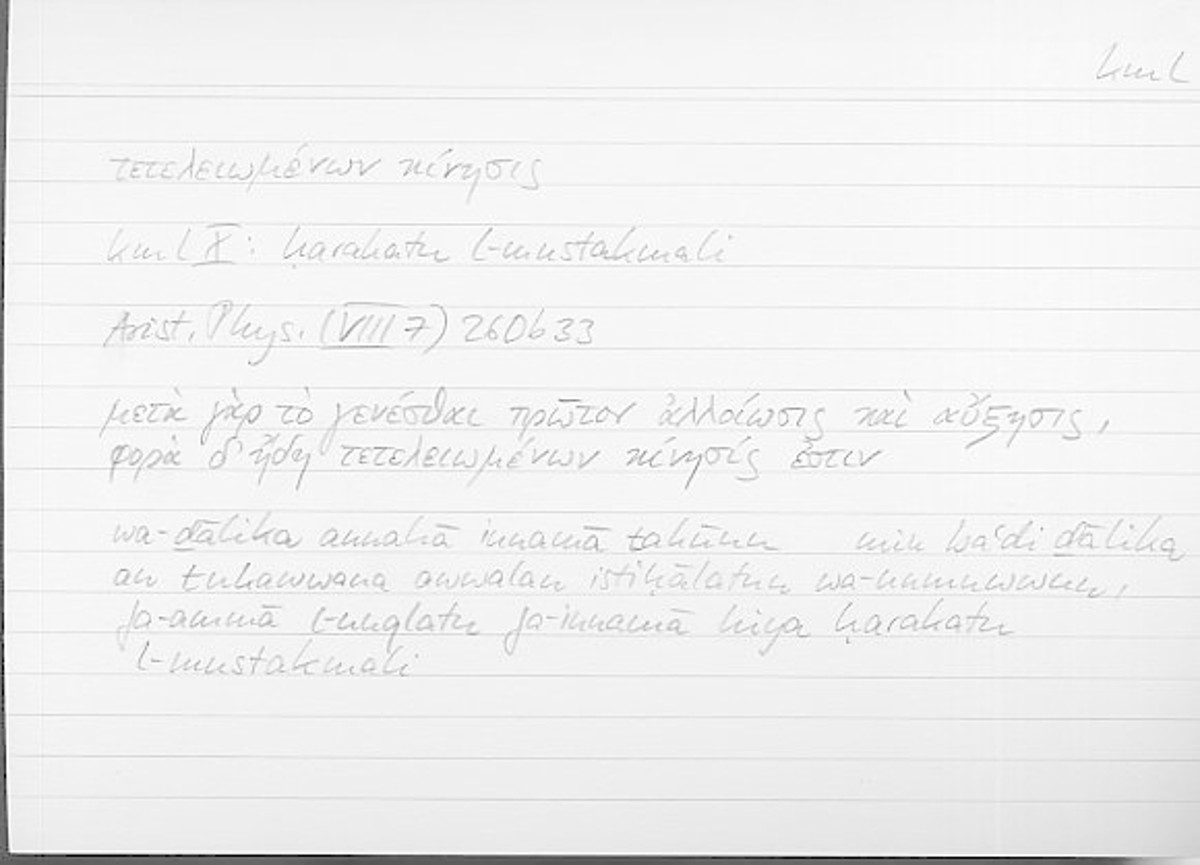 kml
τετελειωμένων κίνησις
kml X: ḥarakatu l-mustakmali
Arist. Phys. (VIII 7) 260b33
μετὰ γὰρ τὸ γενέσθαι πρῶτον ἀλλοίωσις καὶ αὔξησις,
φορὰ δ' ἤδη τετελειωμένων κίνησίς ἐστιν
wa-ḏālika annahā innamā takūnu min baʿdi ḏālika
an tukawwana awwalan istiḥālatun wa-numuwwun,
fa-ammā l-nuqlatu fa-innamā hiya ḥarakatu
l-mustakmali